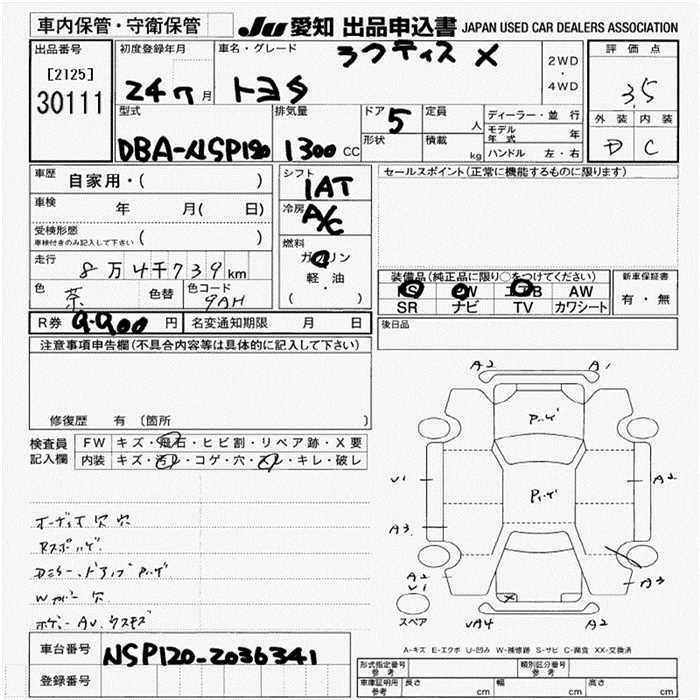 車内保管・守衛保管
JU 愛知 出品申込書 JAPAN USED CAR DEALERS ASSOCIATION
出品番号
[2125]
30111
初度登録年月
24 7 月
車名・グレード
ラクティス X
トヨタ
2WD
・
4WD
評価点
3.5
外装 内装
D C
型式
DBA-NSP120
排気量
1300 CC
ドア 5
形状
定員 人
積載 kg
ディーラー・並行
モデル年式 年
ハンドル 左・右
車歴 自家用・( )
車検 年 月( 日)
受検形態
車検付きのみ記入して下さい ( )
走行
8万4千739km
色 茶 色替 色コード 9AH
シフト
IAT
冷房
A/C
燃料
ガソリン
軽・油
( )
セールスポイント(正常に機能するものに限ります)
装備品(純正品に限り○をつけてください)
PS PW エアB AW
SR ナビ TV カワシート
新車保証書
有・無
R券 円
名変通知期限 月 日
後日品
注意事項申告欄(不具合内容等は具体的に記入して下さい)
修復歴 有 〔箇所 〕
検査員
記入欄
FW キズ・飛石・ヒビ割・リペア跡・X要
内装 キズ・汚レ・コゲ・穴・スレ・キレ・破レ
オーディオ欠 穴
Wカバー 欠
A2 A1
V1 A2
A3
A2
V1
A3
スペア
VA4 A2
A-キズ E-エクボ U-凹み W-補修跡 S-サビ C-腐食 XX-交換済
車台番号 NSP120-2036341
登録番号
形式指定番号 参考
類別区分番号 参考
車庫証明用 参考 長さ cm 幅 cm 高さ cm